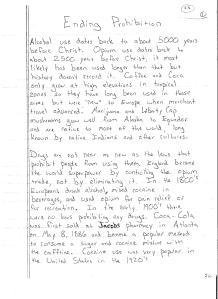 Ending Prohibition
Alcohol use dates back to about 5000 years
before Christ. Opium use dates back to
about 2500 years before Christ, it most
likely has been used longer than that but
history doesn't record it. Coffee and Coca
only grow at high elevations in tropical
zones so they have long been used in those
areas but were "new" to Europe when merchant
travel advanced. Marijuana and Liberty Cap
mushrooms grow well from Alaska to Equador
and are native to most of the world, long
known by native Indians and other cultures.
Drugs are not near as new as the laws that
prohibit people from using them. England became
the world superpower by controling the opium
trade, not by eliminating it. In the 1800's
Europeans drank alcohol, mixed cocaine in
beverages, and used opium for pain relief or
for recreation. In the early 1900's there
were no laws prohibiting any drugs. Coca-Cola
was first sold at Jacobs pharmacy in Atlanta
on May 8, 1886 and became a popular method
to consume a sugar and cocaine mixture with
the caffeine. Cocaine use was very popular in
the United States in the 1920's